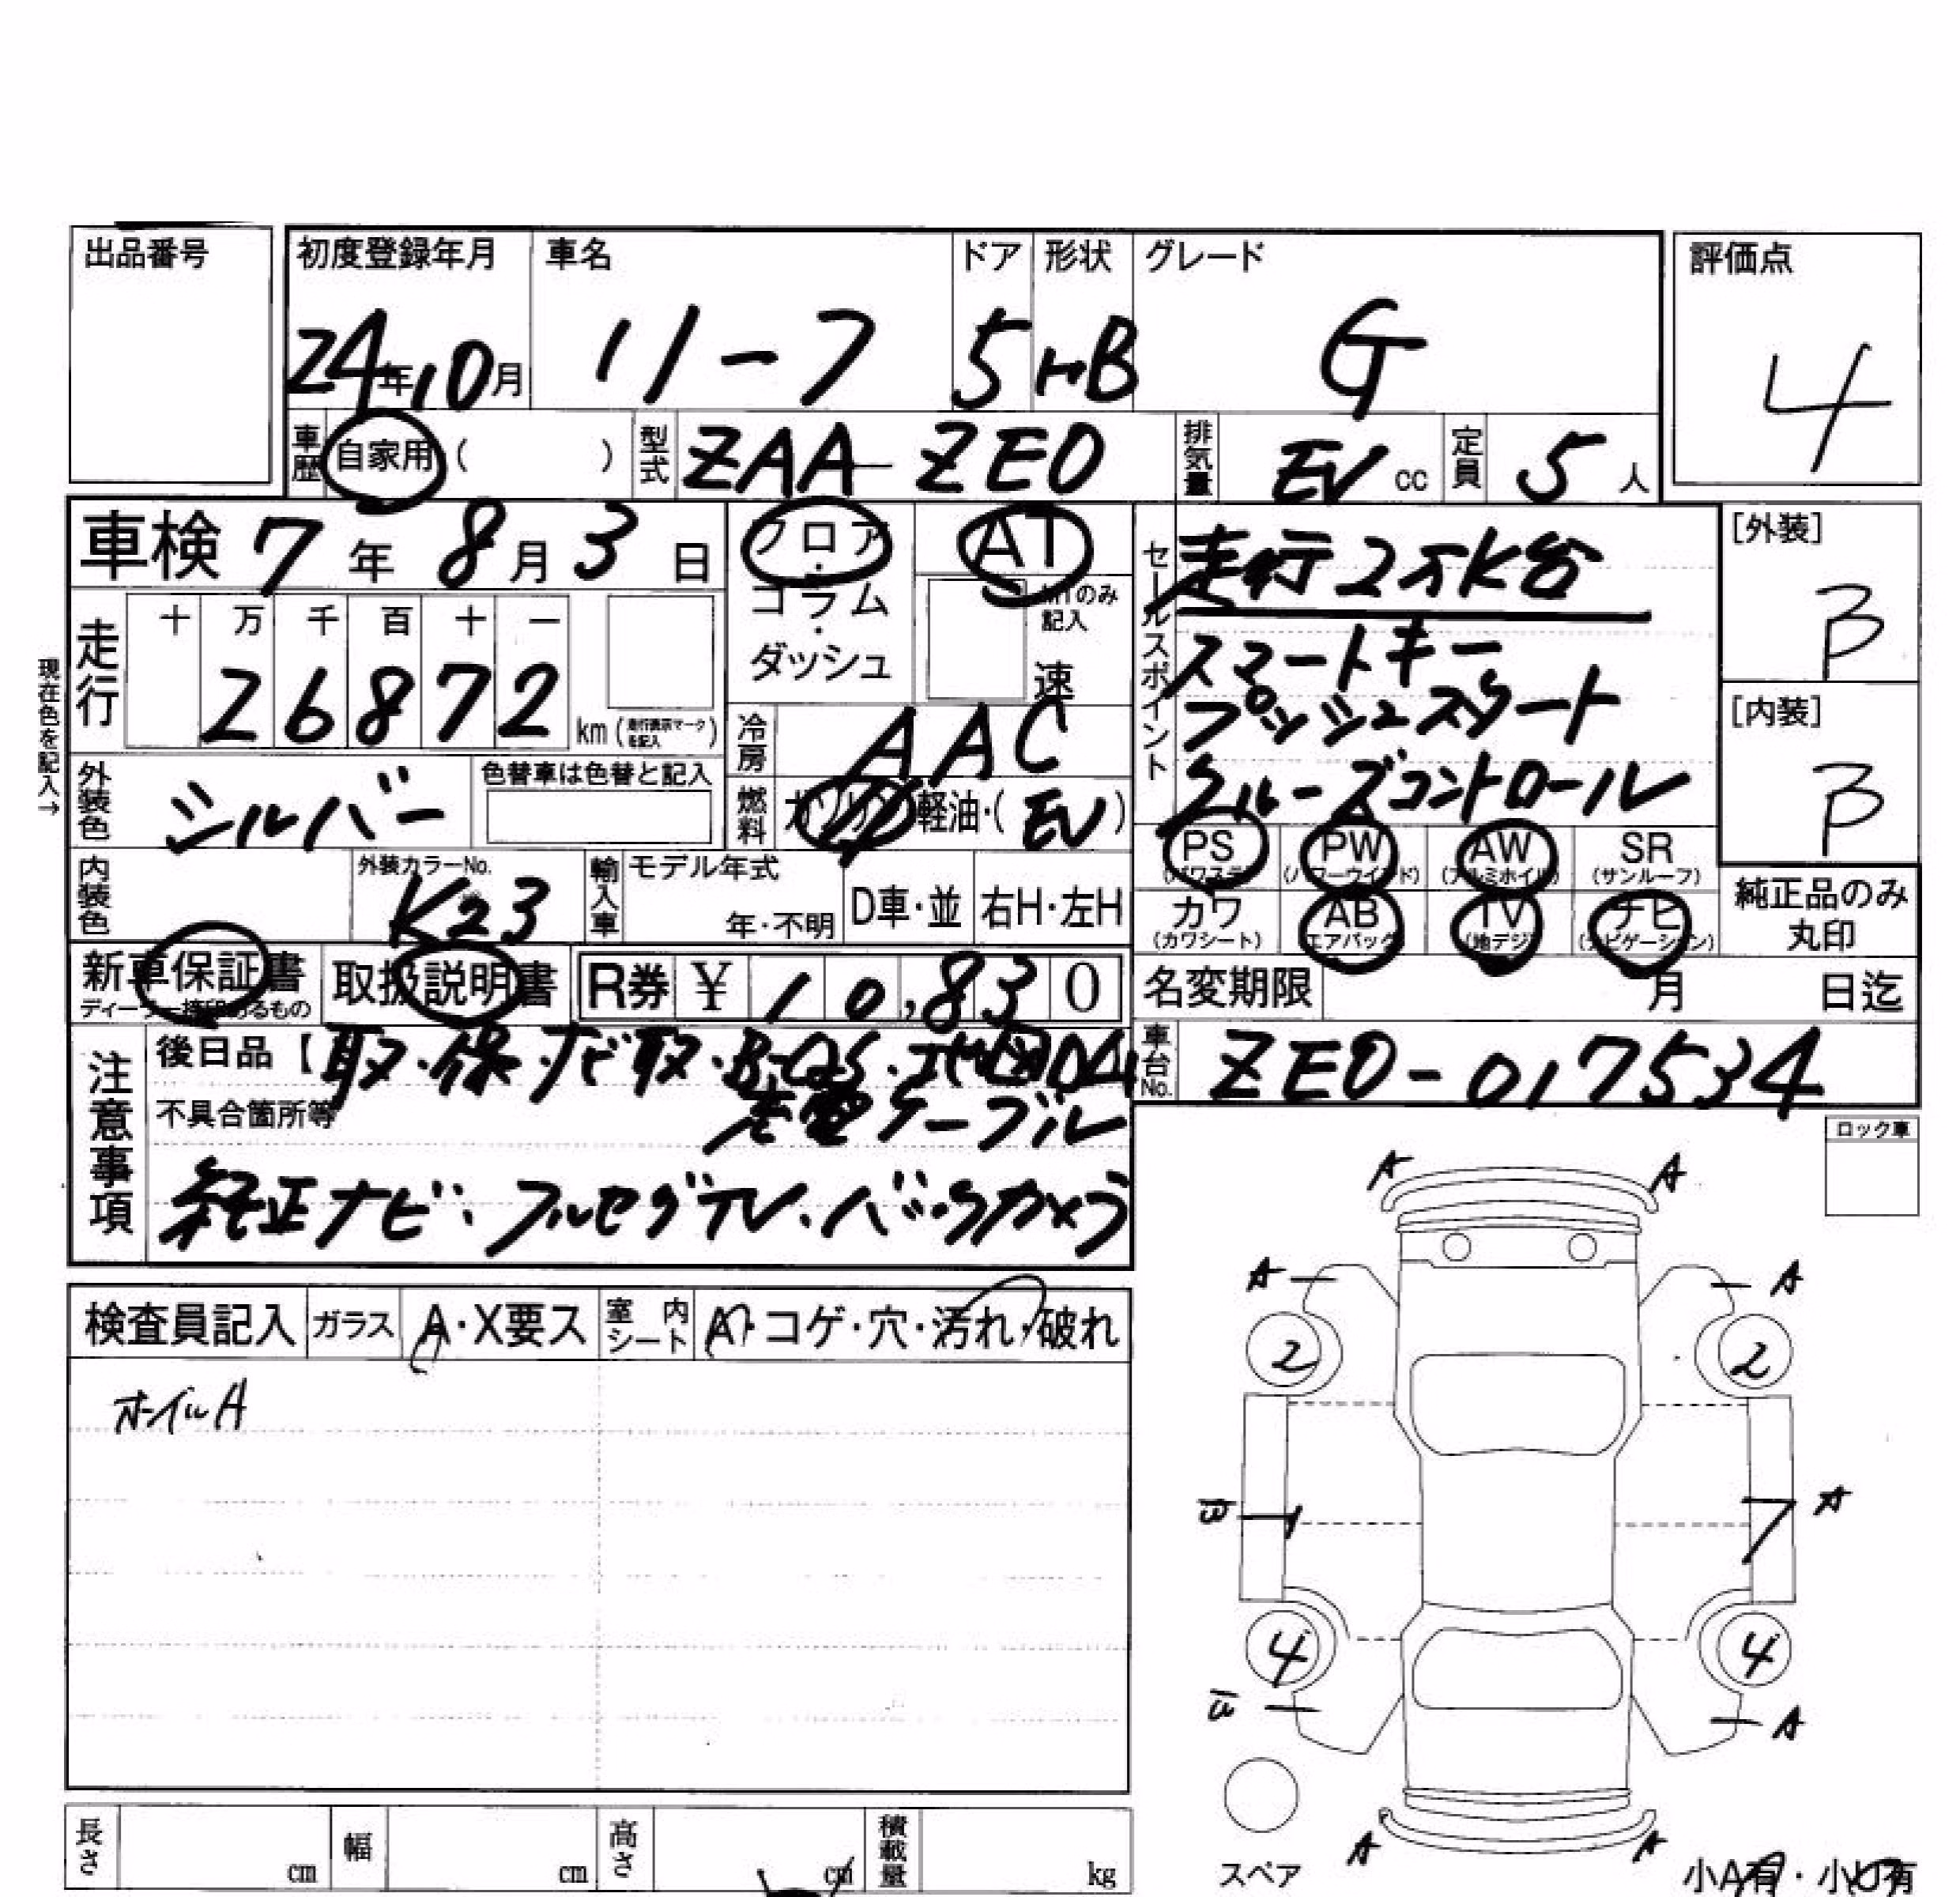 出品番号
初度登録年月 車名 ドア 形状 グレード 評価点
24年10月 リーフ 5 HB G 4
車歴 自家用( ) 型式 ZAA-ZE0 排気量 EV cc 定員 5人
車検 7年8月3日 フロア・コラム・ダッシュ AT
MTのみ記入 速
セールスポイント
走行2万K台
スマートキー
プッシュスタート
クルーズコントロール
[外装] B
[内装] B
現在色を記入→
走行 十 万 千 百 十 一
26872 km(走行表示マークを記入)
冷房 AAC
外装色 シルバー 色替車は色替と記入 燃料 ガソリン・軽油・(EV)
内装色 外装カラーNo. K23 輸入車 モデル年式 年・不明 D車・並 右H・左H
PS(パワステ) PW(パワーウインド) AW(アルミホイル) SR(サンルーフ)
カワ(カワシート) AB(エアバッグ) TV(地デジ) ナビ(ナビゲーション) 純正品のみ丸印
新車保証書 取扱説明書 R券 ¥10,830 名変期限 月 日迄
車台No. ZE0-017534
注意事項
後日品【取・保・ナビ取・
充電ケーブル
不具合箇所等
純正ナビ・フルセグTV・バックカメラ
ロック車
検査員記入 ガラス A・X要ス 室内シート A・コゲ・穴・汚れ・破れ
ホイルA
A A
A A
2 2
A
4 4
A
A A
スペア
長さ cm 幅 cm 高さ cm 積載量 kg
小A有・小U有